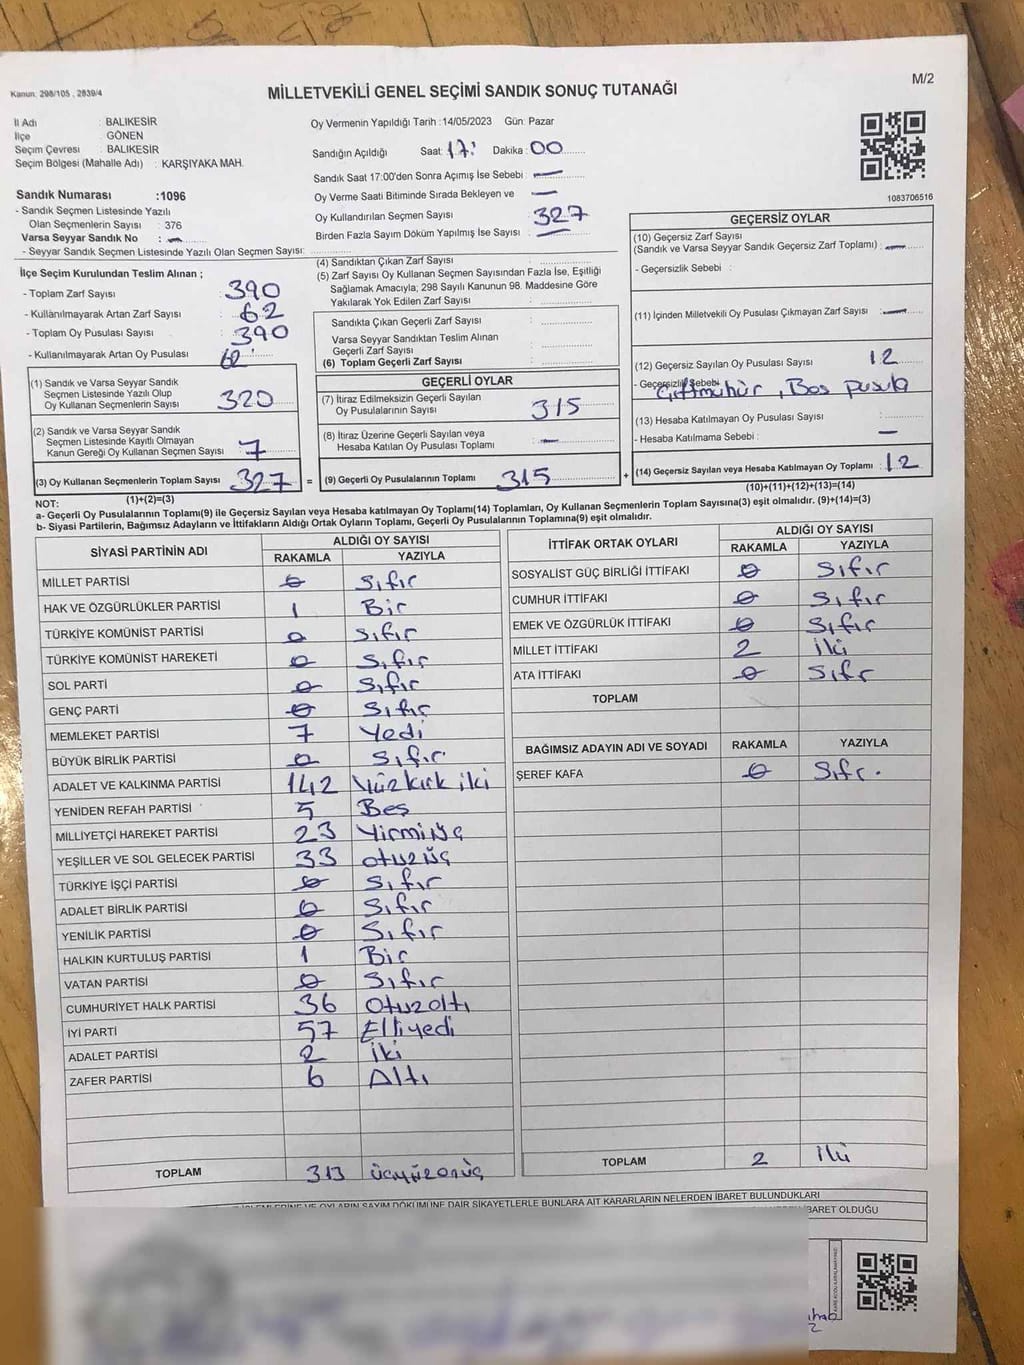 M/2
Kanun: 298/105 , 2839/4
MİLLETVEKİLİ GENEL SEÇİMİ SANDIK SONUÇ TUTANAĞI
İl Adı : BALIKESİR
İlçe : GÖNEN
Seçim Çevresi : BALIKESİR
Seçim Bölgesi (Mahalle Adı) : KARŞIYAKA MAH.
Sandık Numarası :1096
- Sandık Seçmen Listesinde Yazılı
Olan Seçmenlerin Sayısı : 376
Varsa Seyyar Sandık No : —
- Seyyar Sandık Seçmen Listesinde Yazılı Olan Seçmen Sayısı:
Oy Vermenin Yapıldığı Tarih :14/05/2023 Gün: Pazar
Sandığın Açıldığı Saat: 17: Dakika : 00
Sandık Saat 17:00'den Sonra Açımış İse Sebebi : —
Oy Verme Saati Bitiminde Sırada Bekleyen ve —
Oy Kullandırılan Seçmen Sayısı : 327
Birden Fazla Sayım Döküm Yapılmış İse Sayısı : —
1083706516
İlçe Seçim Kurulundan Teslim Alınan ;
- Toplam Zarf Sayısı : 390
- Kullanılmayarak Artan Zarf Sayısı : 62
- Toplam Oy Pusulası Sayısı : 390
- Kullanılmayarak Artan Oy Pusulası 62
(1) Sandık ve Varsa Seyyar Sandık
Seçmen Listesinde Yazılı Olup
Oy Kullanan Seçmenlerin Sayısı : 320
(2) Sandık ve Varsa Seyyar Sandık
Seçmen Listesinde Kayıtlı Olmayan
Kanun Gereği Oy Kullanan Seçmen Sayısı : 7
(3) Oy Kullanan Seçmenlerin Toplam Sayısı : 327 =
(1)+(2)=(3)
(4) Sandıktan Çıkan Zarf Sayısı :
(5) Zarf Sayısı Oy Kullanan Seçmen Sayısından Fazla İse, Eşitliği
Sağlamak Amacıyla; 298 Sayılı Kanunun 98. Maddesine Göre
Yakılarak Yok Edilen Zarf Sayısı :
Sandıkta Çıkan Geçerli Zarf Sayısı :
Varsa Seyyar Sandıktan Teslim Alınan
Geçerli Zarf Sayısı :
(6) Toplam Geçerli Zarf Sayısı :
GEÇERLİ OYLAR
(7) İtiraz Edilmeksizin Geçerli Sayılan
Oy Pusulalarının Sayısı : 315
(8) İtiraz Üzerine Geçerli Sayılan veya
Hesaba Katılan Oy Pusulası Toplamı : —
(9) Geçerli Oy Pusulalarının Toplamı : 315 +
GEÇERSİZ OYLAR
(10) Geçersiz Zarf Sayısı
(Sandık ve Varsa Seyyar Sandık Geçersiz Zarf Toplamı) : —
- Geçersizlik Sebebi :
(11) İçinden Milletvekili Oy Pusulası Çıkmayan Zarf Sayısı : —
(12) Geçersiz Sayılan Oy Pusulası Sayısı : 12
- Geçersizlik Sebebi : Çiftmühür , Boş pusula
(13) Hesaba Katılmayan Oy Pusulası Sayısı :
- Hesaba Katılmama Sebebi : —
(14) Geçersiz Sayılan veya Hesaba Katılmayan Oy Toplamı : 12
(10)+(11)+(12)+(13)=(14)
NOT:
a- Geçerli Oy Pusulalarının Toplamı(9) ile Geçersiz Sayılan veya Hesaba katılmayan Oy Toplamı(14) Toplamları, Oy Kullanan Seçmenlerin Toplam Sayısına(3) eşit olmalıdır. (9)+(14)=(3)
b- Siyasi Partilerin, Bağımsız Adayların ve İttifakların Aldığı Ortak Oyların Toplamı, Geçerli Oy Pusulalarının Toplamına(9) eşit olmalıdır.
SİYASİ PARTİNİN ADI ALDIĞI OY SAYISI
RAKAMLA YAZIYLA
MİLLET PARTİSİ 0 Sıfır
HAK VE ÖZGÜRLÜKLER PARTİSİ 1 Bir
TÜRKİYE KOMÜNİST PARTİSİ 0 Sıfır
TÜRKİYE KOMÜNİST HAREKETİ 0 Sıfır
SOL PARTİ 0 Sıfır
GENÇ PARTİ 0 Sıfır
MEMLEKET PARTİSİ 7 Yedi
BÜYÜK BİRLİK PARTİSİ 0 Sıfır
ADALET VE KALKINMA PARTİSİ 142 Yüzkırkiki
YENİDEN REFAH PARTİSİ 5 Beş
MİLLİYETÇİ HAREKET PARTİSİ 23 Yirmiüç
YEŞİLLER VE SOL GELECEK PARTİSİ 33 Otuzüç
TÜRKİYE İŞÇİ PARTİSİ 0 Sıfır
ADALET BİRLİK PARTİSİ 0 Sıfır
YENİLİK PARTİSİ 0 Sıfır
HALKIN KURTULUŞ PARTİSİ 1 Bir
VATAN PARTİSİ 0 Sıfır
CUMHURİYET HALK PARTİSİ 36 Otuzaltı
İYİ PARTİ 57 Elliyedi
ADALET PARTİSİ 2 İki
ZAFER PARTİSİ 6 Altı
TOPLAM 313 üçyüzonüç
İTTİFAK ORTAK OYLARI ALDIĞI OY SAYISI
RAKAMLA YAZIYLA
SOSYALİST GÜÇ BİRLİĞİ İTTİFAKI 0 Sıfır
CUMHUR İTTİFAKI 0 Sıfır
EMEK VE ÖZGÜRLÜK İTTİFAKI 0 Sıfır
MİLLET İTTİFAKI 2 İki
ATA İTTİFAKI 0 Sıfr
TOPLAM
BAĞIMSIZ ADAYIN ADI VE SOYADI RAKAMLA YAZIYLA
ŞEREF KAFA 0 Sıfr.
TOPLAM 2 İki
OYLARIN SAYIM DÖKÜMÜNE DAİR ŞİKAYETLERLE BUNLARA AİT KARARLARIN NELERDEN İBARET BULUNDUKLARI
BARET OLDUĞU